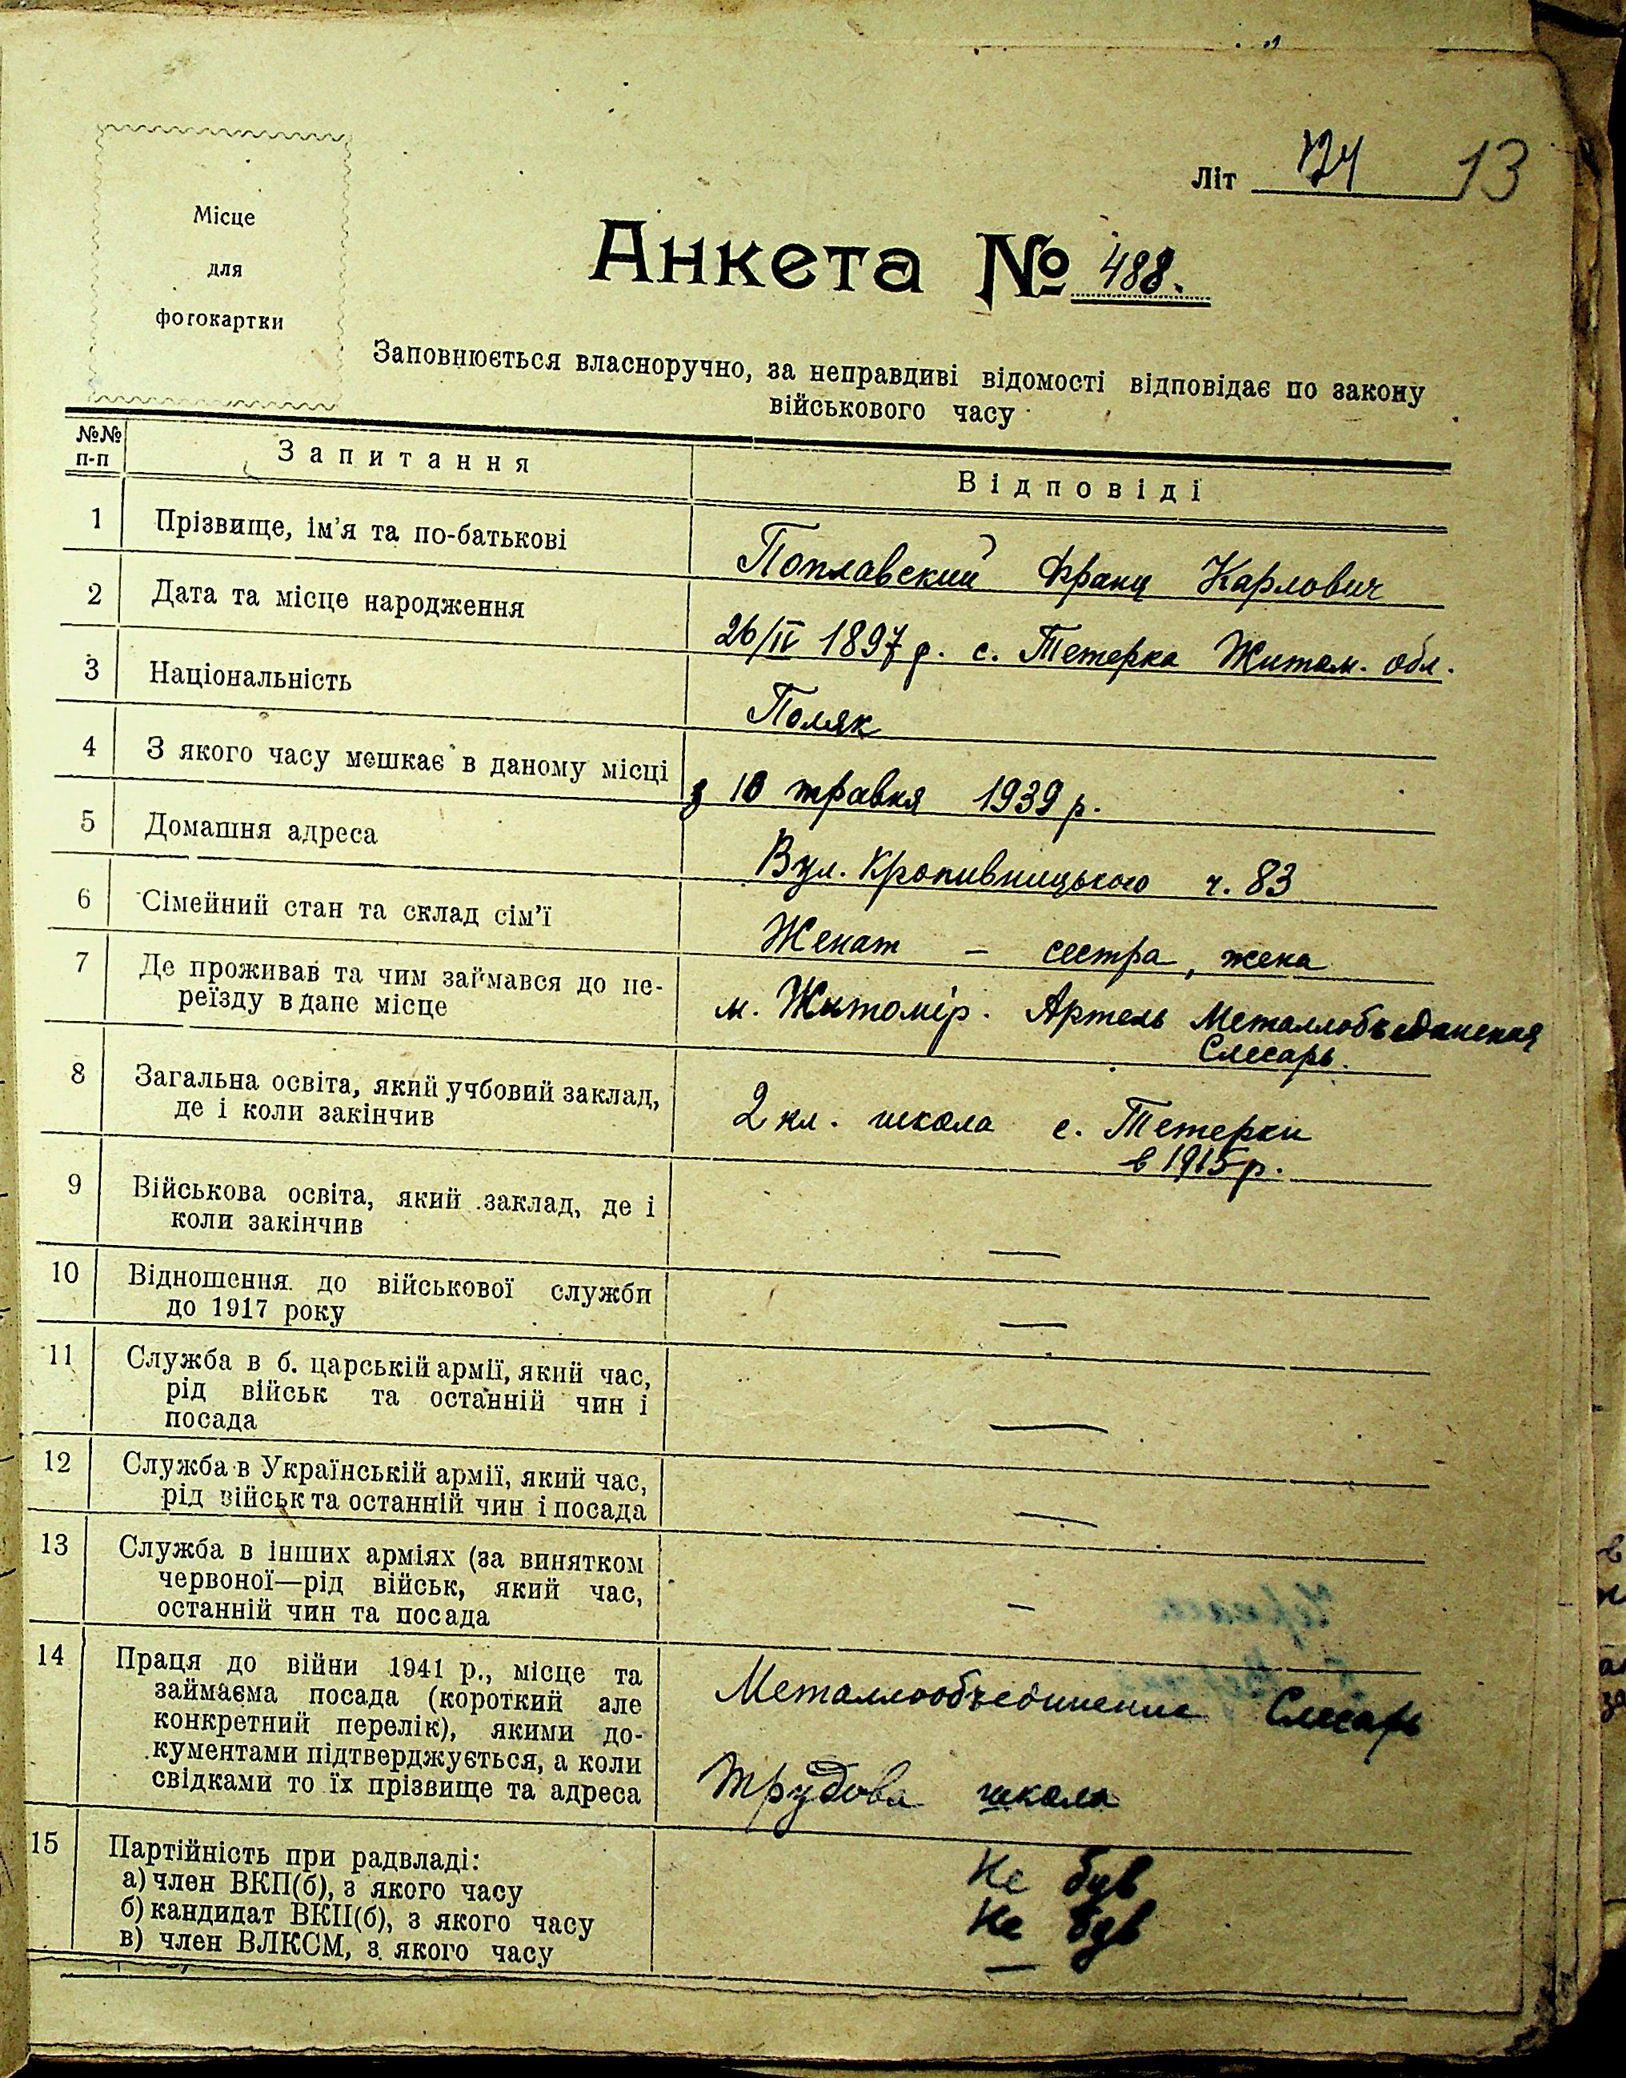 Літ 13
Місце
для
фотокартки
Анкета № 488.
Заповнюється власноручно, за неправдиві відомості відповідає по закону
військового часу
№№ п-п Запитання Відповіді
1 Прізвище, ім'я та по-батькові Поплавский Франц Карлович
2 Дата та місце народження 26/IV 1897 р. с. Тетерка Житом. обл.
3 Національність Поляк
4 З якого часу мешкає в даному місці з 10 травня 1939 р.
5 Домашня адреса Вул. Кропивницького ч. 83
6 Сімейний стан та склад сім'ї Женат – сестра, жена
7 Де проживав та чим займався до пе-
реїзду в дане місце м. Житомір. Артель
Слесарь.
8 Загальна освіта, який учбовий заклад,
де і коли закінчив 2 кл. школа с. Тетерки
в 1915 р.
9 Військова освіта, який заклад, де і
коли закінчив —
10 Відношення до військової служби
до 1917 року —
11 Служба в б. царській армії, який час,
рід військ та останній чин і
посада —
12 Служба в Українській армії, який час,
рід військ та останній чин і посада —
13 Служба в інших арміях (за винятком
червоної—рід військ, який час,
останній чин та посада —
14 Праця до війни 1941 р., місце та
займаєма посада (короткий але
конкретний перелік), якими до-
кументами підтверджується, а коли
свідками то їх прізвище та адреса
Металлообъединение Слесарь
Трудова школа
15 Партійність при радвладі:
а) член ВКП(б), з якого часу Не був
б) кандидат ВКП(б), з якого часу Не був
в) член ВЛКСМ, з якого часу —